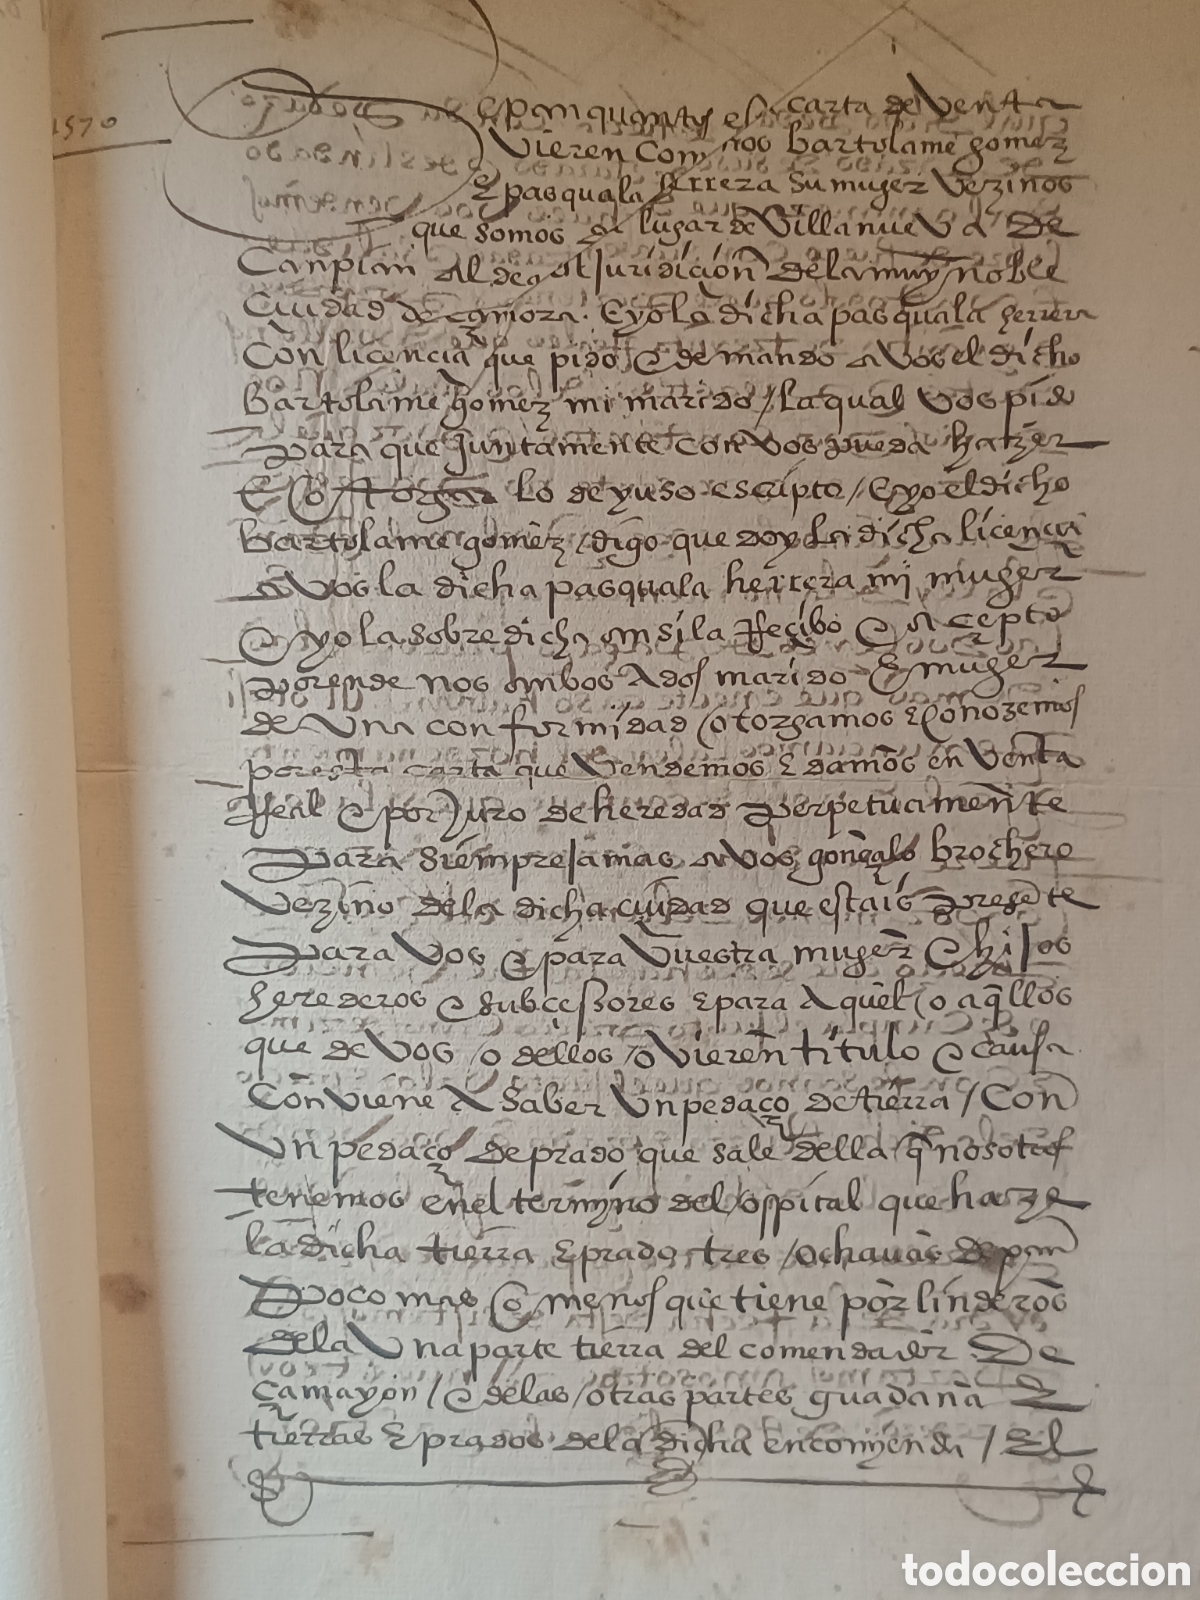 1570
Sepan quantos esta carta de Venta
Vieren Como nos bartolame gomez
E pasquala herreza su muger Vezinos
que somos del lugar de Villanueva De
Canpian al de Juridicion de la muy noble
Ciudad de çamora. E yo la dicha pasquala herrera
Con licencia que pido E demando a Vos el dicho
bartolame gomez mi marido / la qual Vos pido
Para que Juntamente con Vos pueda hazer
E otorgar lo de yuso escripto / E yo el dicho
bartolame gomez / digo que doy la dicha licençia
a Vos la dicha pasquala herreza mi muger
E yo la sobre dicha ansi la Reçibo E açepto
Porende nos ambos A dos marido E muger
de Una conformidad / otorgamos E Conozemos
por esta carta que Vendemos E damos en Venta
Real E por Juro de heredad Perpetuamente
Para siempre Jamas a Vos gonçalo brochero
Vezino de la dicha çiudad que estais Presente
Para Vos E para Vuestra muger E hijos
herederos E subçessores E para Aquel / o aqllos
que de Vos / o dellos / o Vieren titulo E causa
Conviene A saber Un pedaço de tierra / Con
Un pedaço de prado que sale della / q nosotros
tenemos en el termino del ospital que haze
la dicha tierra E prado tres / ochavas de pan
Poco mas O menos que tiene por linderos
de la Una parte tierra del comendador De
Camayon / E de las / otras partes guadaña E
tierras E prados de la dicha encomyenda / El
todocoleccion